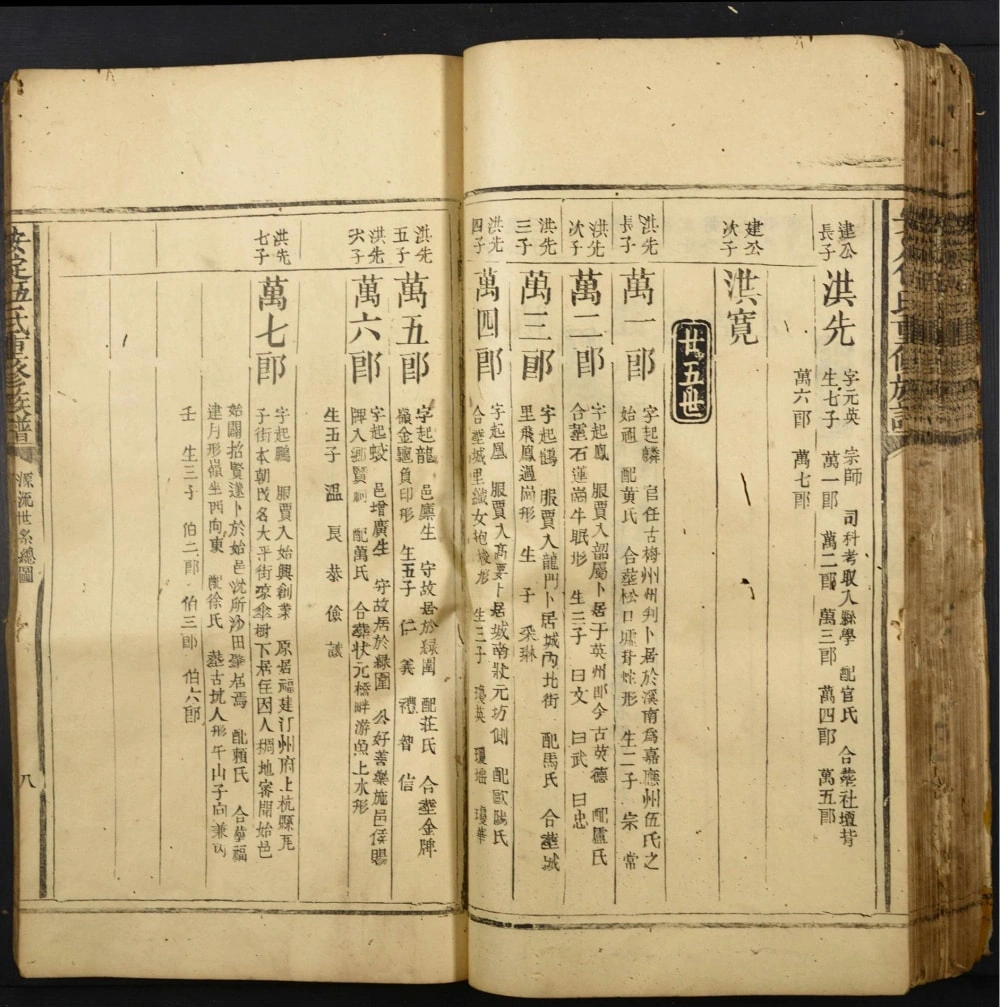 建公
長子
洪先
字元英 宗師 司科考取入縣學 配官氏 合塟社壇背
生七子 萬一郎 萬二郎 萬三郎 萬四郎 萬五郎
萬六郎 萬七郎
建公
次子
洪寛
廿五世
洪先
長子
萬一郎
字起麟 官任古梅州州判卜居於溪南爲嘉應州伍氏之
始祖 配黄氏 合塟松口墟背蛇形 生二子 宗 常
洪先
次子
萬二郎
字起鳳 服賈入韶屬卜居于英州即今古英德 配盧氏
合塟石蓮崗牛眠形 生三子 曰文 曰武 曰忠
洪先
三子
萬三郎
字起鶴 服賈入龍門卜居城內北街 配馬氏 合塟城
里飛鳳過崗形 生 子 采琳
洪先
四子
萬四郎
字起鳳 服賈入高要卜居城南狀元坊側 配歐陽氏
合塟城里織女抛梭形 生三子 瓊英 瓊瑤 瓊華
洪先
五子
萬五郎
字起龍 邑廩生 守故居於緑圍 配莊氏 合塟金牌
嶺金龜負印形 生五子 仁 義 禮 智 信
洪先
六子
萬六郎
字起蛟 邑增廣生 守故居於緑圍 公好善樂施邑侯賜
牌入鄉賢祠 配萬氏 合塟狀元橋畔游魚上水形
生五子 溫 良 恭 儉 讓
洪先
七子
萬七郎
字起鵬 服賈入始興創業 原居福建汀州府上杭縣瓦
子街本朝改名大平街凉傘樹下居住因人稠地窄開始邑
始闢招賢遂卜於始邑沈所沙田肇居焉 配賴氏 合塟福
建月形嶺坐西向東 衡徐氏 塟古坑人形午山子向兼丙
壬 生三子 伯二郎 伯三郎 伯六郎
安定伍氏重修族譜
源流世系總圖
八